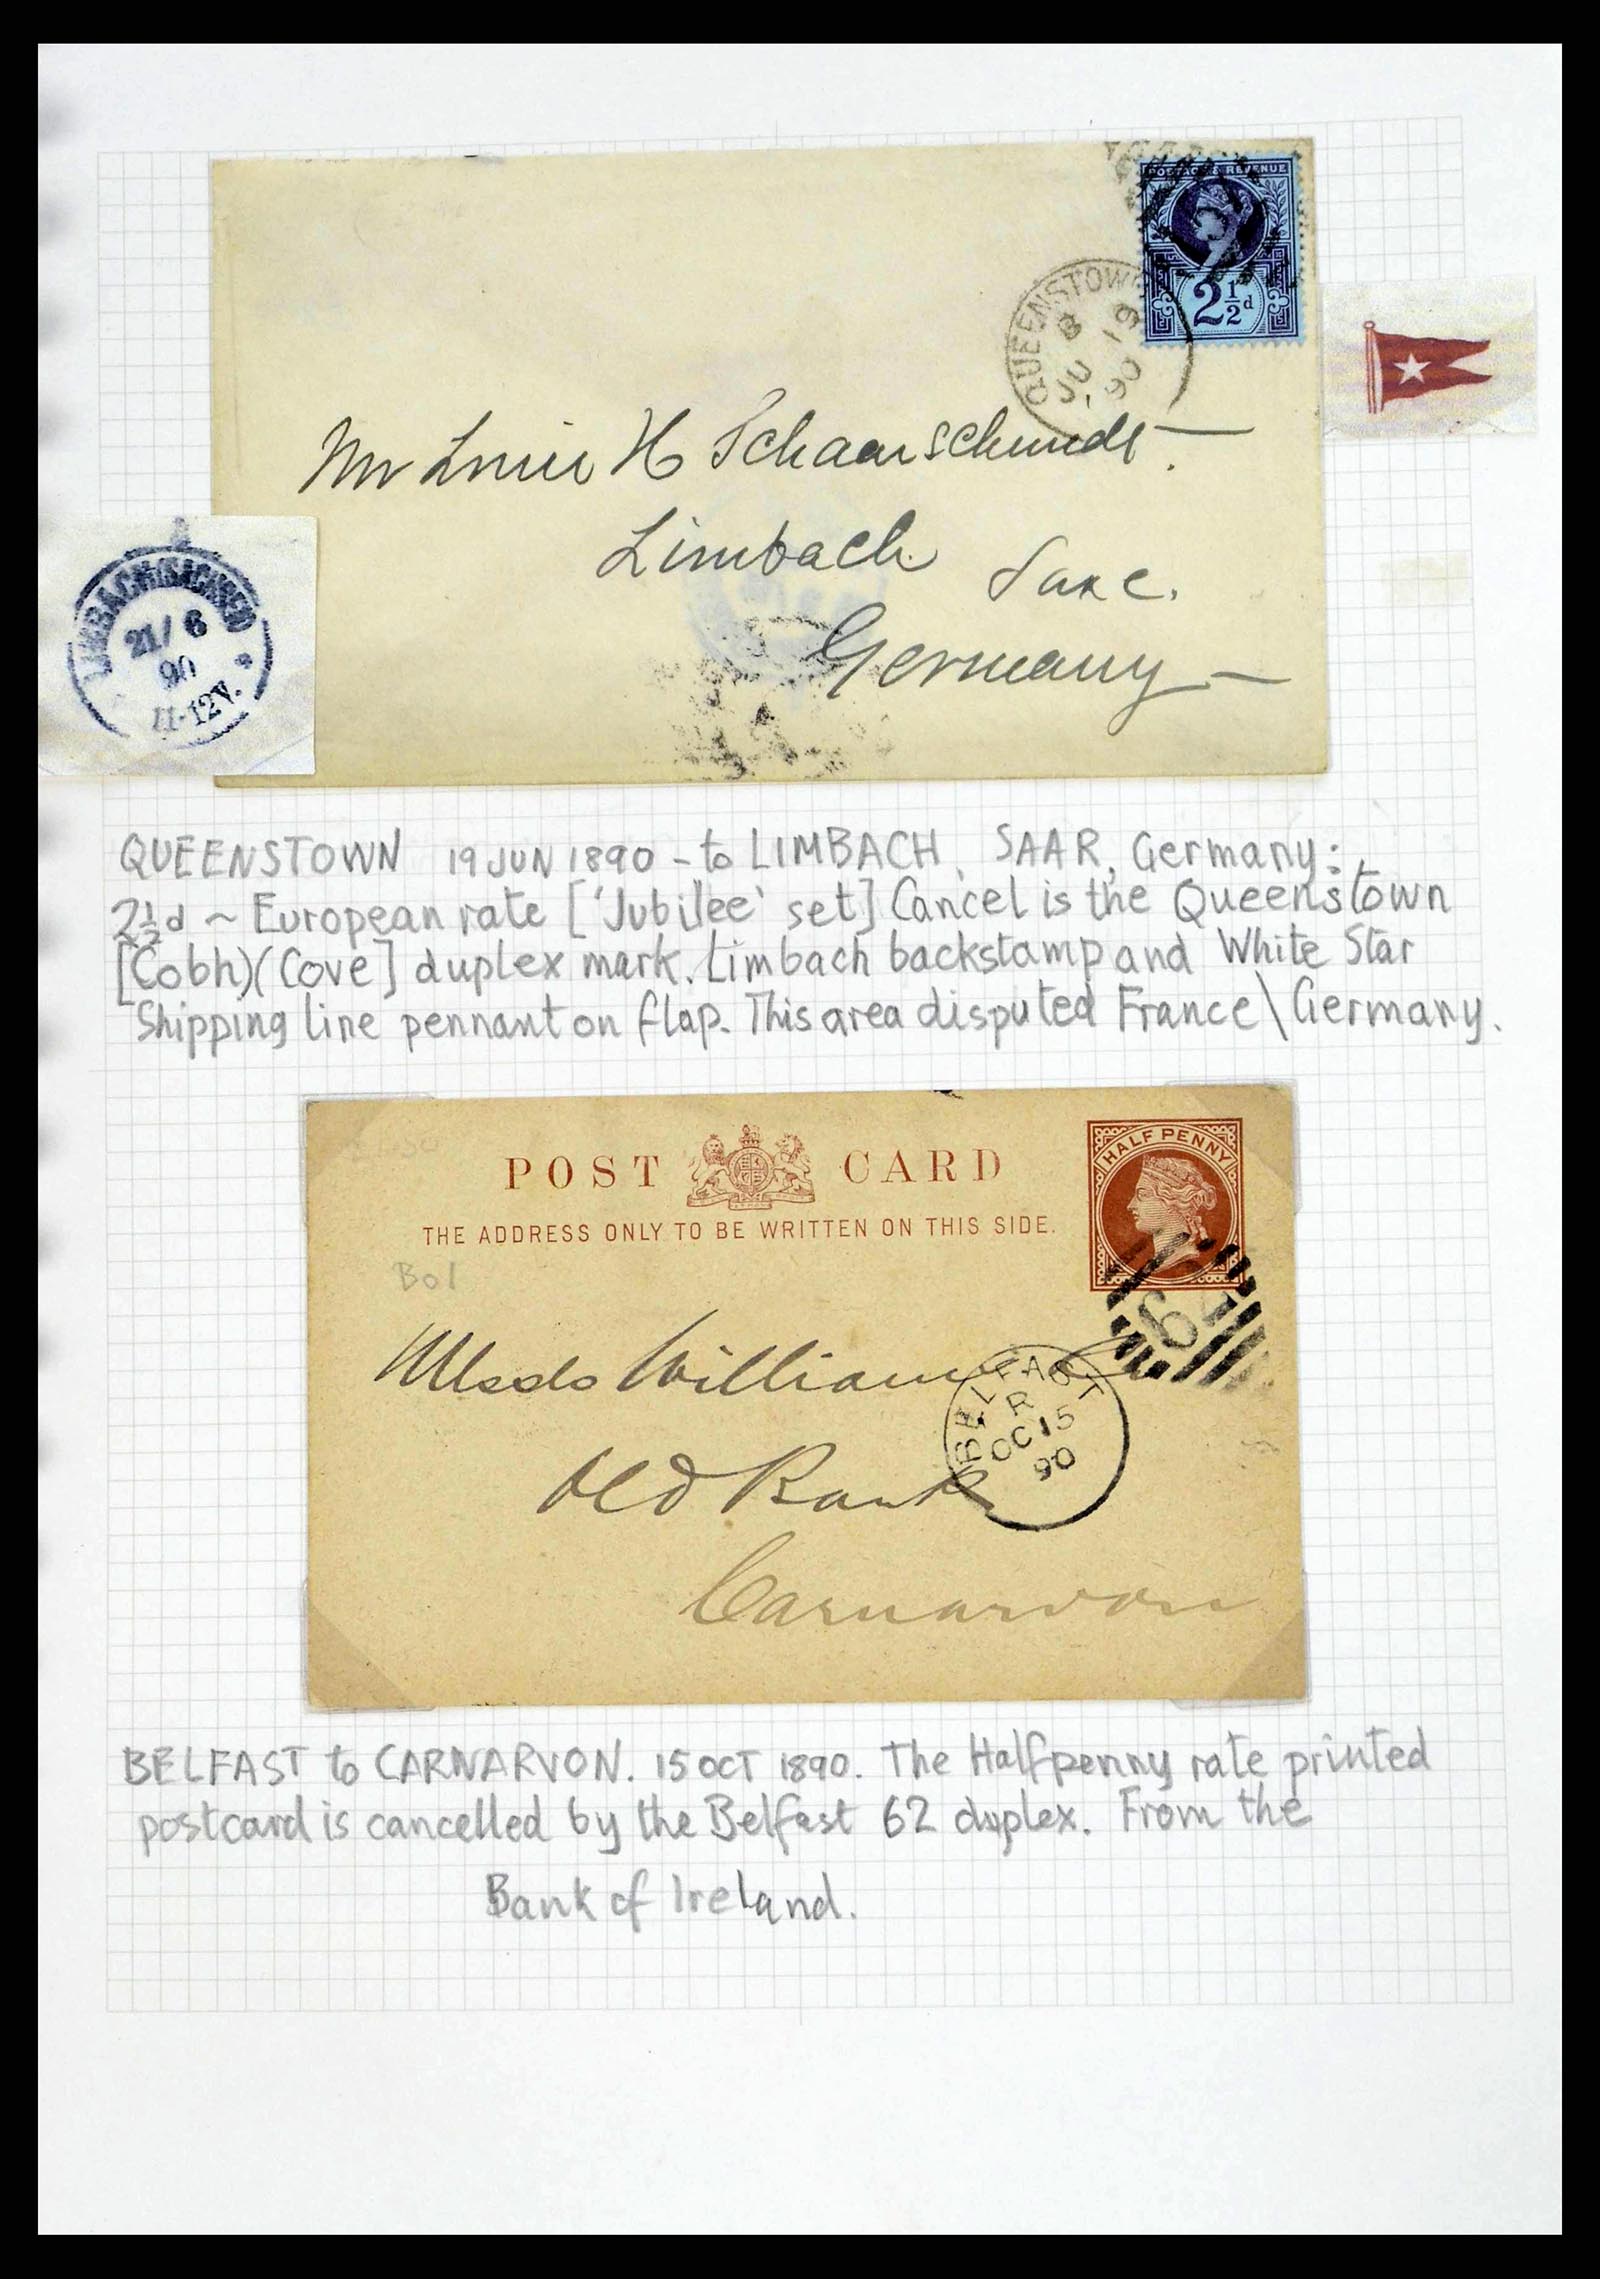 POSTAGE & REVENUE
2½d
QUEENSTOWN
B
JU 19
90
Mr Louis H Schaarschmidt
Limbach
Saxe.
Germany
LIMBACH (SACHSEN)
21/6
90
11-12V.
QUEENSTOWN 19 JUN 1890 - to LIMBACH, SAAR, Germany:
2½d ~ European rate ['Jubilee' set] Cancel is the Queenstown
[Cobh)(Cove] duplex mark. Limbach backstamp and White Star
Shipping line pennant on flap. This area disputed France \ Germany.
POST CARD
HALFPENNY
THE ADDRESS ONLY TO BE WRITTEN ON THIS SIDE.
BoI
62
Williams
BELFAST
R
OC 15
90
Old Bank
Carnarvon
BELFAST to CARNARVON. 15 OCT 1890. The Halfpenny rate printed
postcard is cancelled by the Belfast 62 duplex. From the
Bank of Ireland.